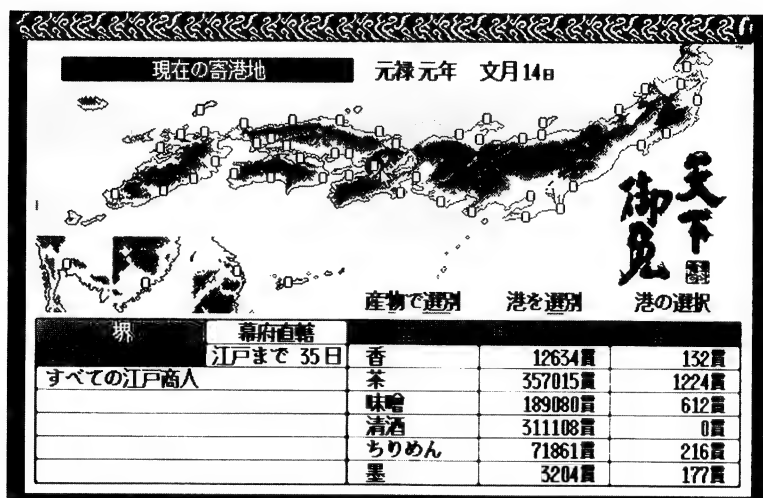 現在の寄港地 元禄元年 文月14日
天下
御免
産物で選別 港を選別 港の選択
堺 幕府直轄
江戸まで 35日
すべての江戸商人
香 12634貫 132貫
茶 357015貫 1224貫
味噌 189080貫 612貫
清酒 311108貫 0貫
ちりめん 71861貫 216貫
墨 3204貫 177貫